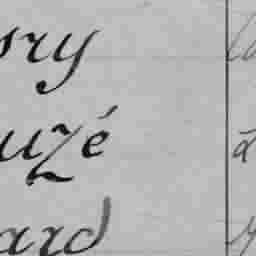 sry
uzé
ard